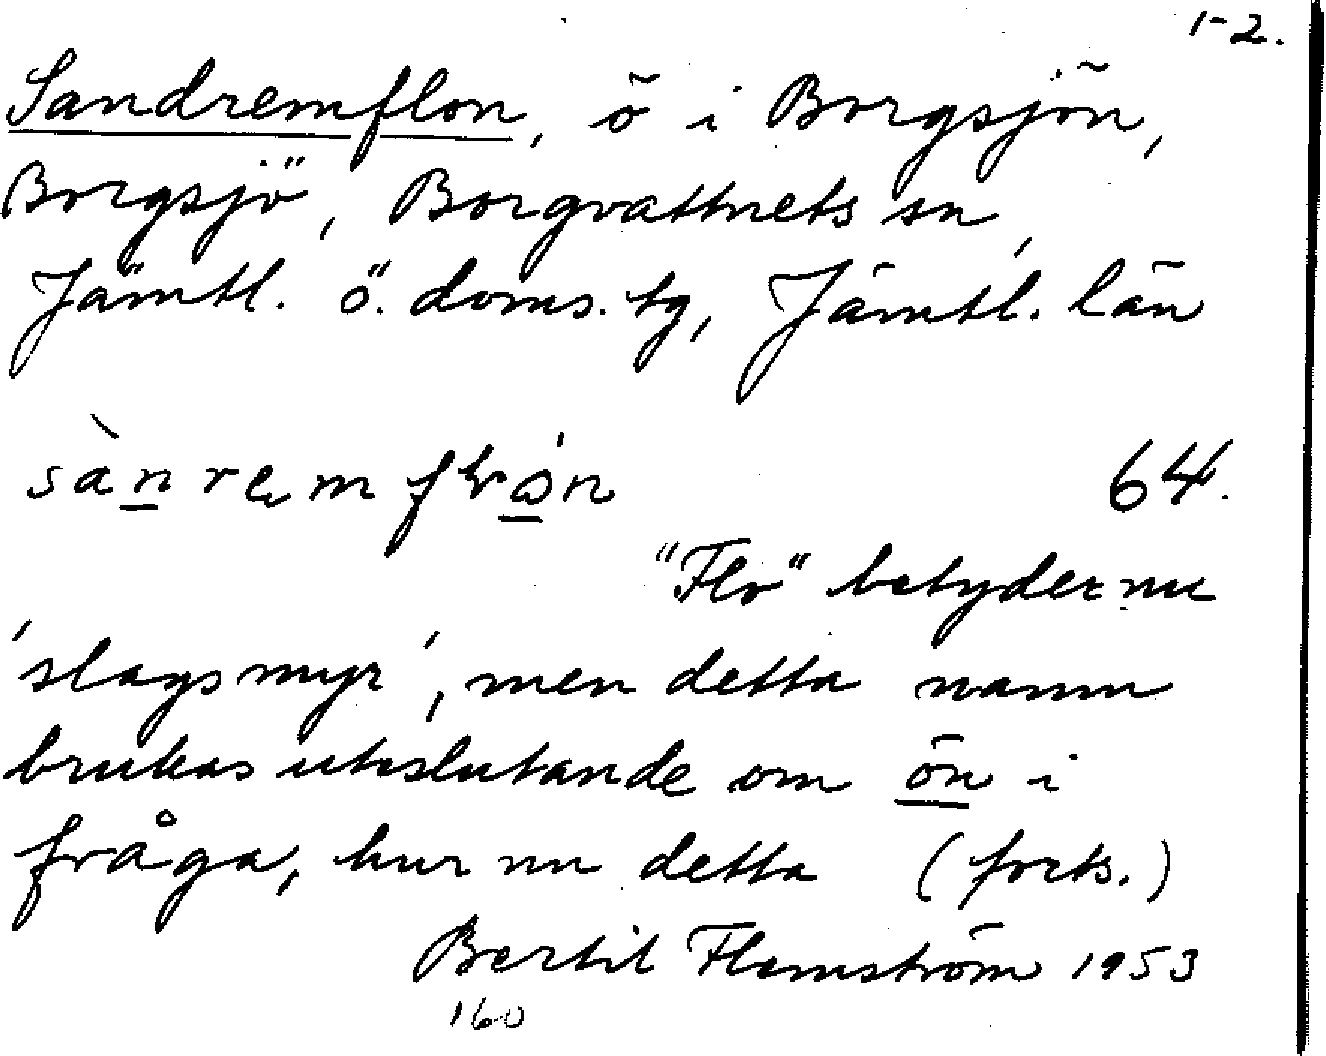 1-2.
Sandremflon, ö i Borgsjön,
Borgsjö, Borgvattnets sn,
Jämtl. ö. doms. tg, Jämtl. län
64.
"Flo" betyder nu
'slagsmyr', men detta namn
brukas uteslutande om ön i
fråga, hur nu detta (forts.)
Bertil Flemström 1953
160